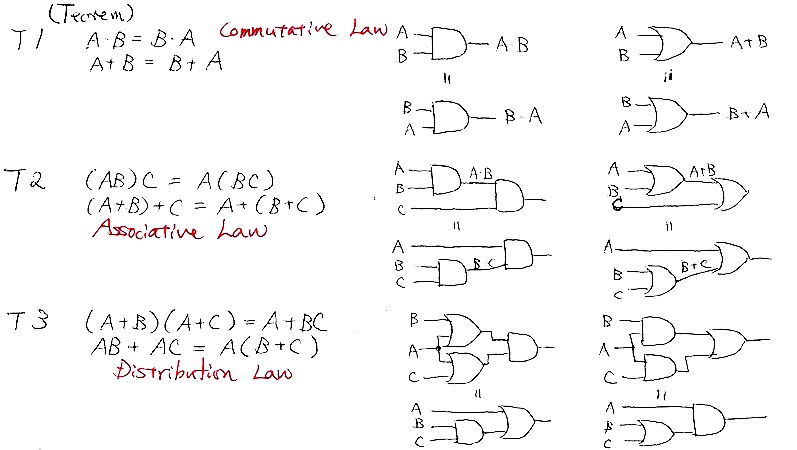 (Teorem)
T1 A·B = B·A Commutative Law
A+B = B+A
A
B
A·B
A
B
A+B
=
=
B
A
B·A
B
A
B+A
T2 (AB)C = A(BC)
(A+B)+C = A+(B+C)
Associative Law
A
B
C
A·B
A
B
C
A+B
=
=
A
B
C
B·C
A
B
C
B+C
T3 (A+B)(A+C) = A+BC
AB + AC = A(B+C)
Distribution Law
B
A
C
B
A
C
=
=
A
B
C
A
B
C